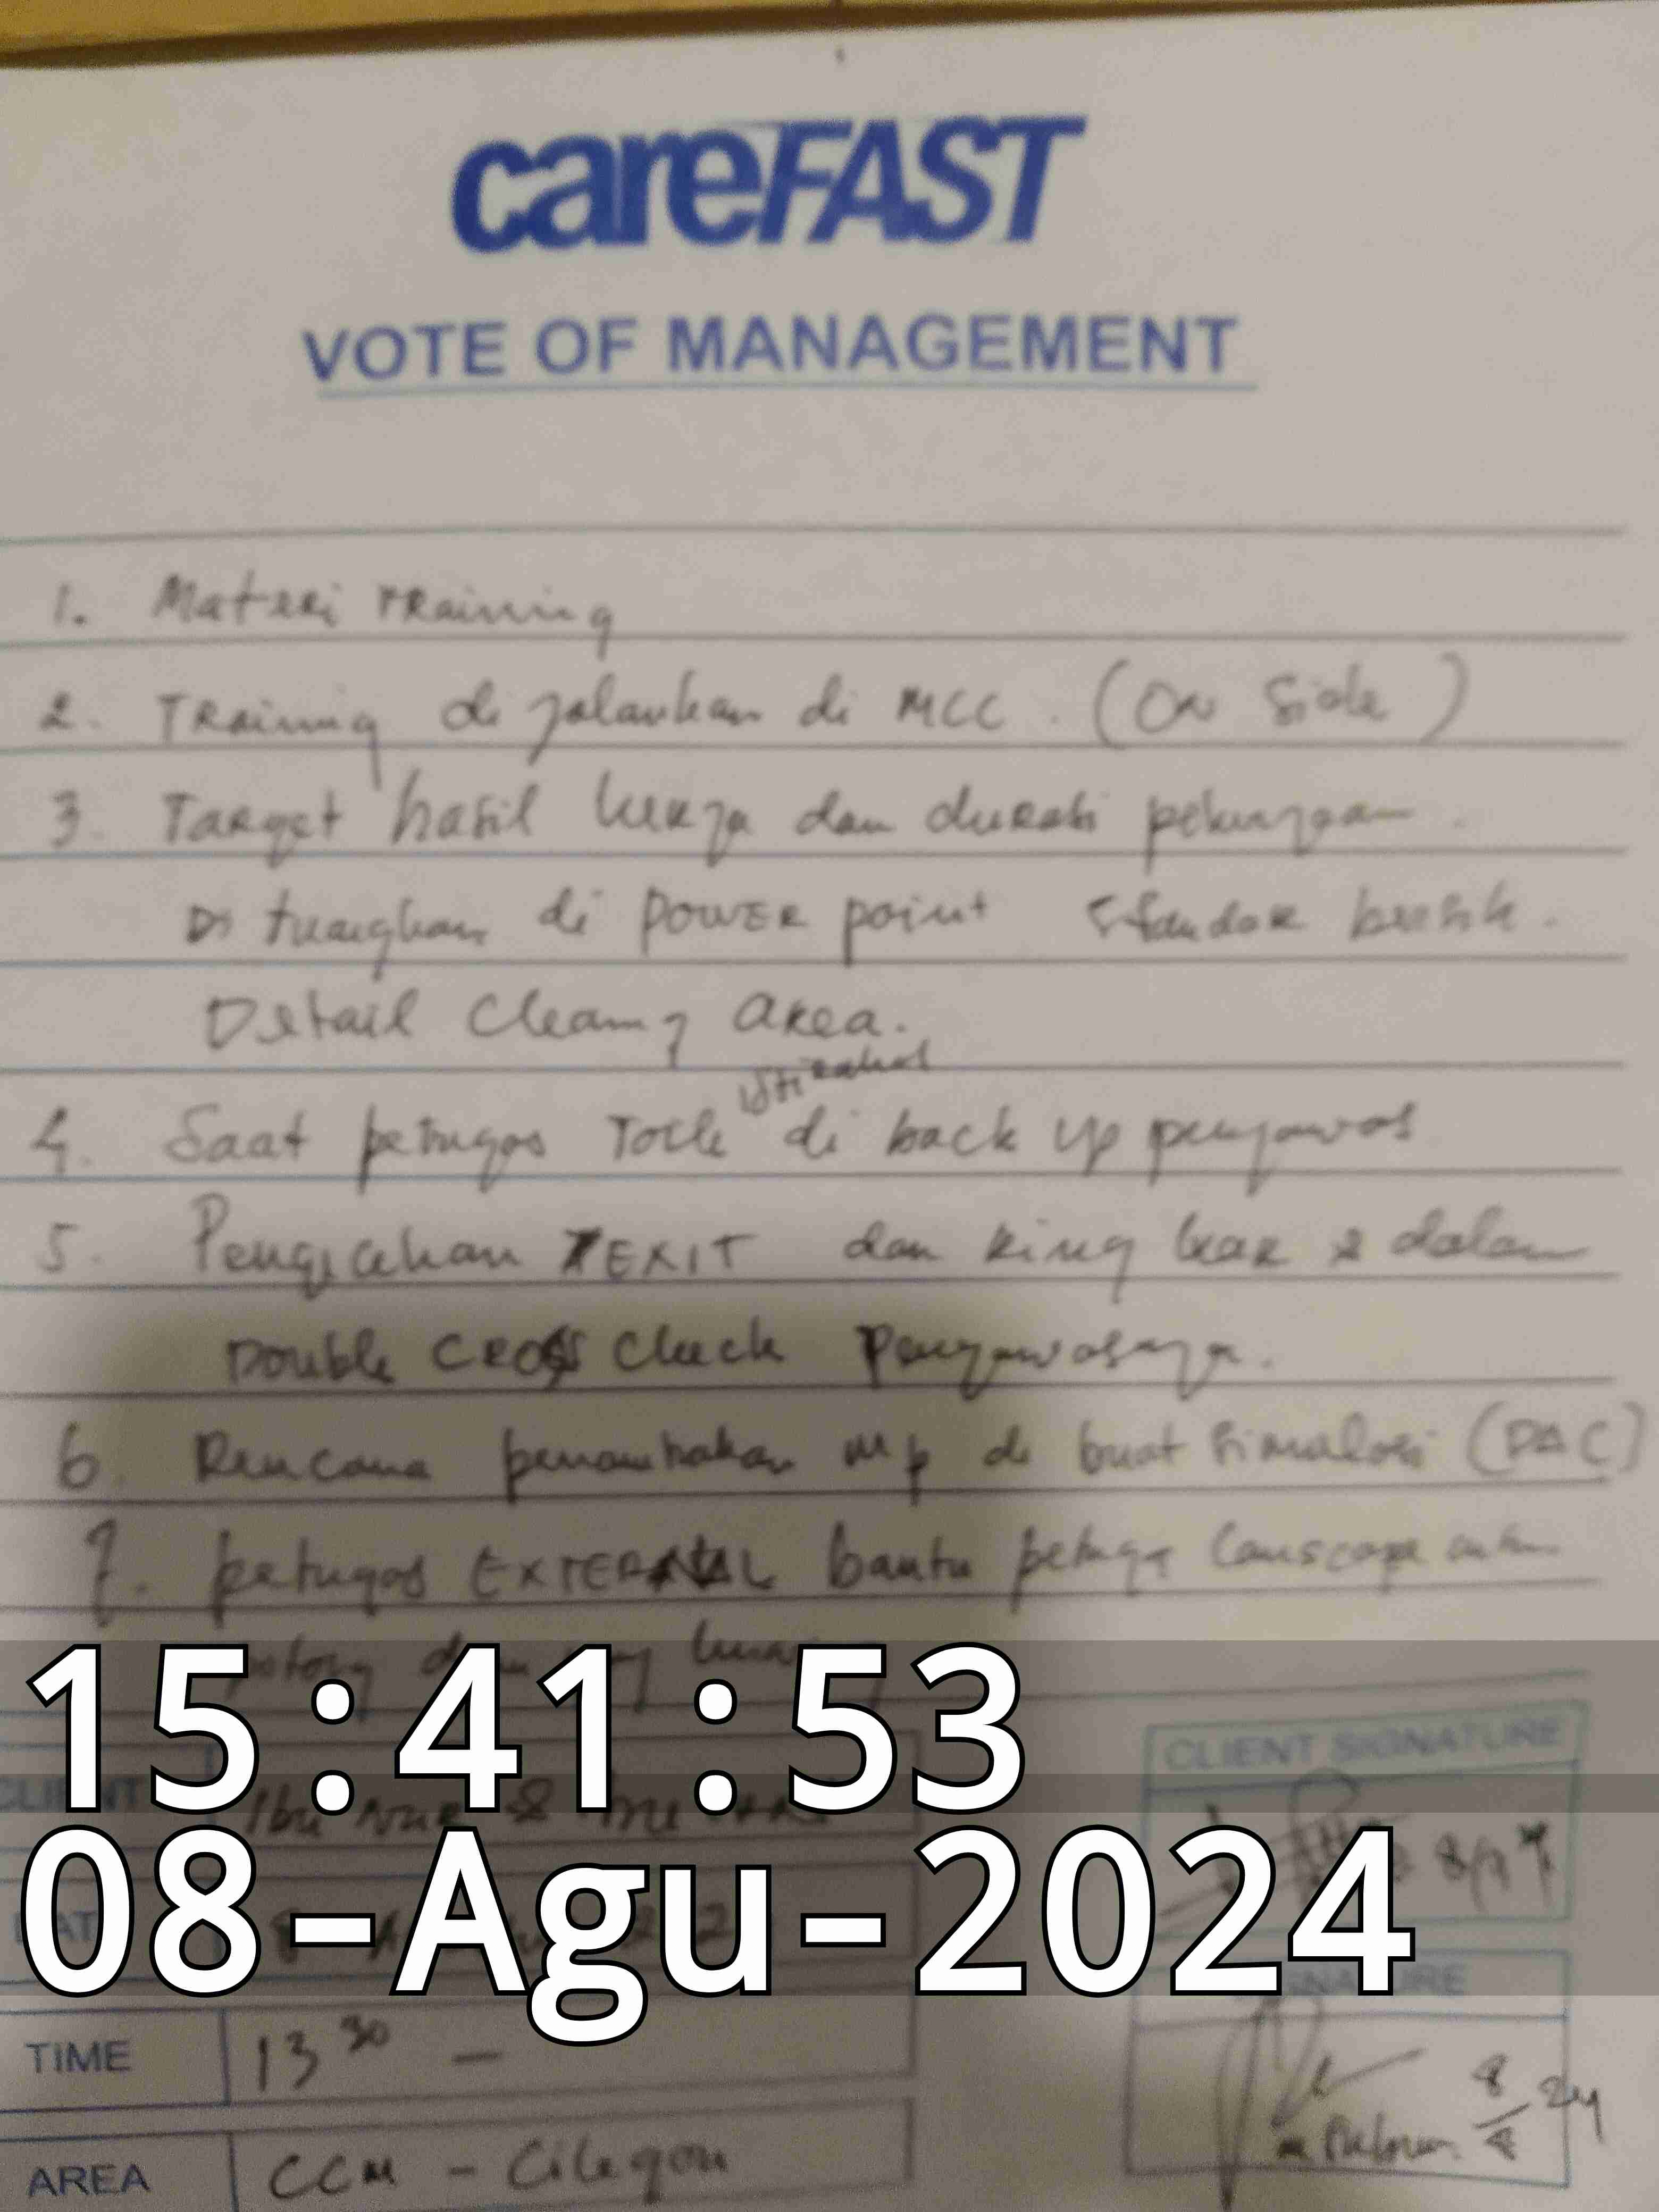 careFAST
VOTE OF MANAGEMENT
1. Materi Training
2. Training di jalankan di MCC. (On Side)
3. Target hasil kerja dan durasi pekerjaan.
Di tuangkan di power point standar bersih.
Detail Cleaning area.
istirahat
4. Saat petugas Toile di back up pengawas
5. Pengecekan EXIT dan Ring luar & dalam
Double Cross Check Pengawasnya.
6. Rencana penambahan mp di buat simulasi (PAC)
7. petugas EXTERNAL bantu petugas Lanscape
15:41:53
08-Agu-2024
CLIENT
Ibu Nur &
CLIENT SIGNATURE
TIME 13 30 -
8/8 24
AREA CCM - Cilegon